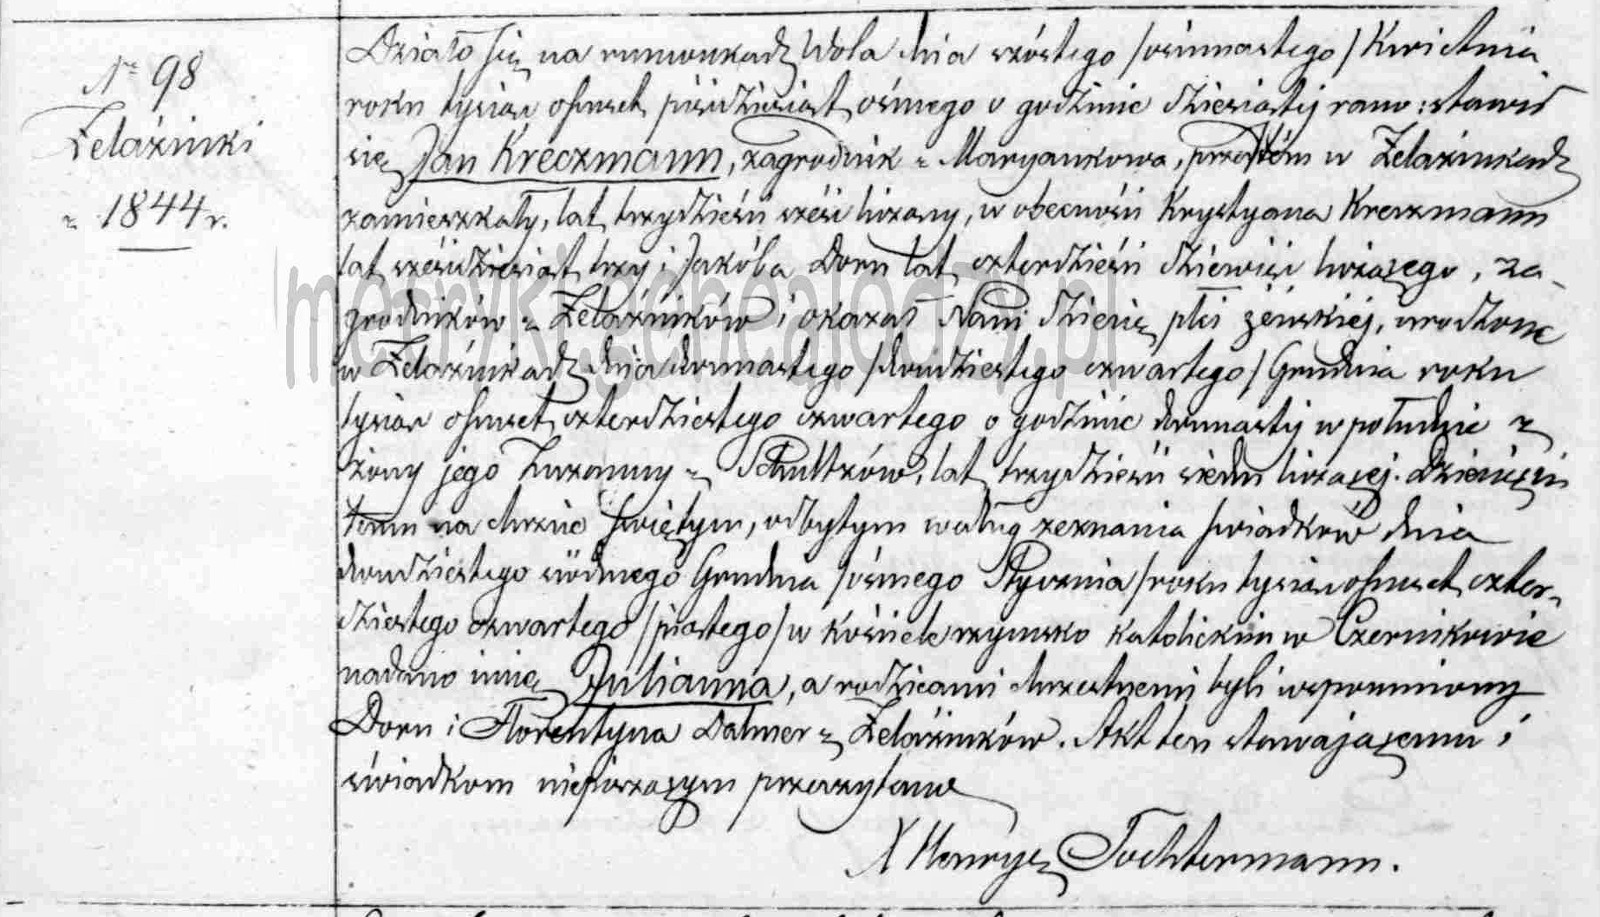 N° 98
Żelaźniki
z 1844 r.
Działo się na rumunkach Wola dnia szóstego /osiemnastego/ Kwietnia
roku tysiąc ośmset pięćdziesiąt ósmego o godzinie dziesiątej rano: stawił
się Jan Kreczmann, zagrodnik z Maryankowa, przedtém w Żelaźnikach
zamieszkały, lat trzydzieści sześć liczący, w obecności Krystyana Kreczmann
lat sześćdziesiąt trzy i Jakóba Dorn lat czterdzieści dziewięć liczącego, za-
grodników z Żelaźników i okazał Nam dziecię płci żeńskiej, urodzone
w Żelaźnikach dnia dwunastego /dwudziestego czwartego/ Grudnia roku
tysiąc ośmset czterdziestego czwartego o godzinie dwunastej w południe z
żony jego Zuzanny z Schultzów, lat trzydzieści siedm liczącej. Dziecięciu
temu na chrzcie świętym, odbytym według zeznania świadków dnia
dwudziestego siódmego Grudnia /ósmego Stycznia/ roku tysiąc ośmset czter-
dziestego czwartego /piątego/ w kościele rzymsko katolickim w Czernikowie
nadano imię Julianna, a rodzicami chrzestnemi byli wspomniony
Dorn i Florentyna Dalmer z Żelaźników. Akt ten stawającemu i
świadkom niepiszącym przeczytano
X Henryk Tochtermann.
metryki.genealodzy.pl